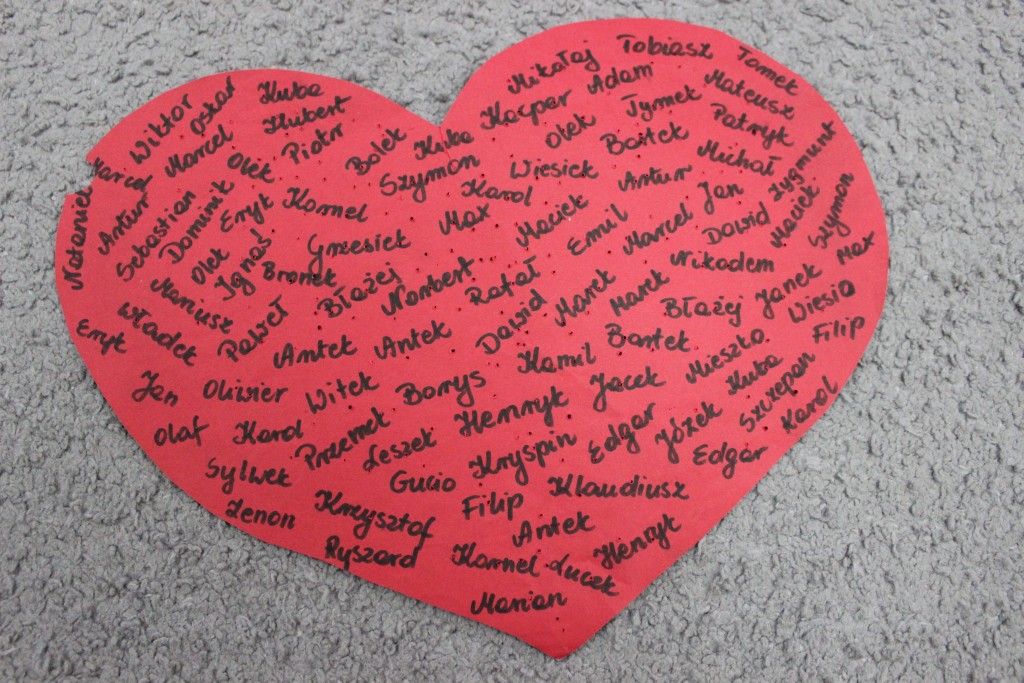 Mikołaj
Tobiasz
Tomek
Wiktor
Oskar
Kuba
Hubert
Kacper
Adam
Mateusz
Marcel
Piotr
Bolek
Kuba
Olek
Tymek
Patryk
Marcel
Olek
Szymon
Wiesiek
Bartek
Michał
Zygmunt
Nataniel
Artur
Sebastian
Dominik
Eryk
Kornel
Karol
Max
Maciek
Artur
Jan
Maciek
Szymon
Olek
Ignaś
Grzesiek
Emil
Marcel
Dawid
Max
Mariusz
Bronek
Błażej
Norbert
Rafał
Marek
Marek
Nikodem
Janek
Wiesio
Eryk
Władek
Paweł
Antek
Antek
Dawid
Bartek
Błażej
Filip
Jan
Oliwier
Witek
Borys
Kamil
Jacek
Mieszko
Kuba
Szczepan
Karol
Olaf
Karol
Przemek
Leszek
Henryk
Edgar
Józek
Edgar
Sylwek
Gucio
Kryspin
Klaudiusz
Zenon
Krzysztof
Filip
Antek
Ryszard
Kornel
Łucek
Henryk
Marian